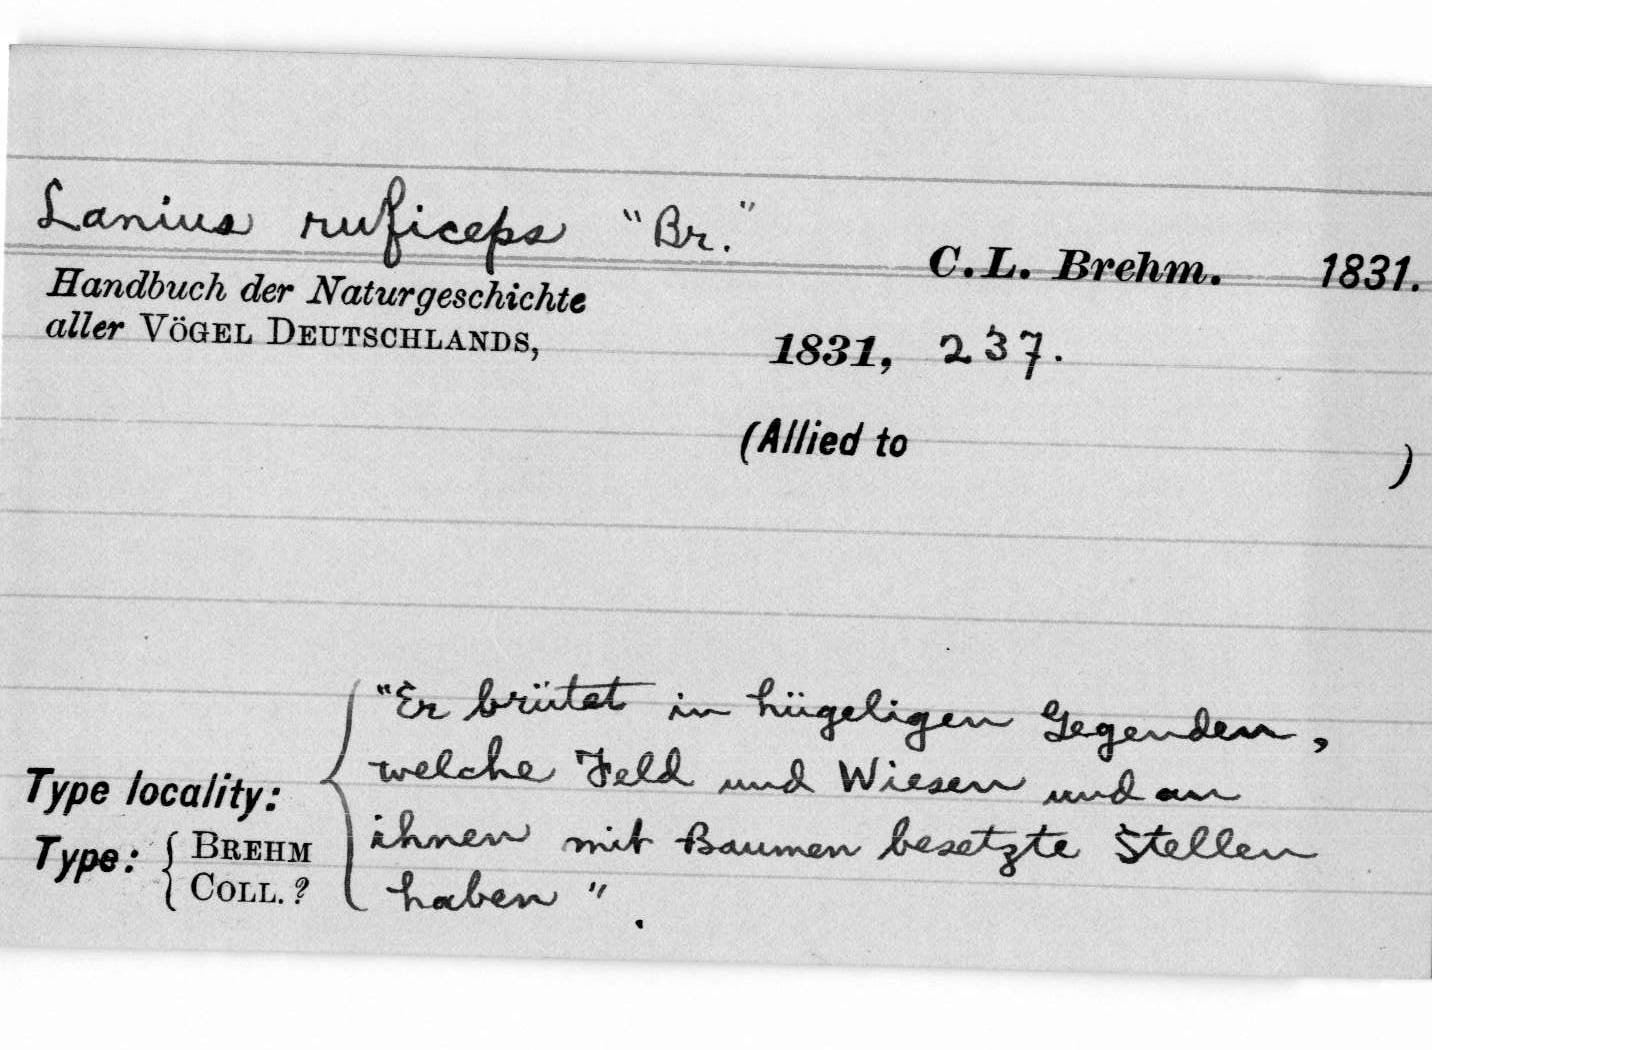 Lanius ruficeps "Br."
C.L. Brehm. 1831.
Handbuch der Naturgeschichte
aller VÖGEL DEUTSCHLANDS,
1831, 237.
(Allied to )
"Er brütet in hügeligen Gegenden,
welche Feld und Wiesen und an
ihnen mit Baumen besetzte Stellen
haben".
Type locality:
Type: { BREHM
COLL. ?